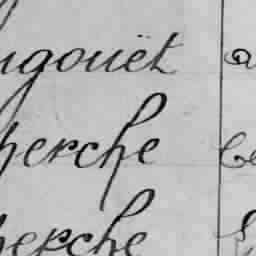 ngouët a
herche
herche